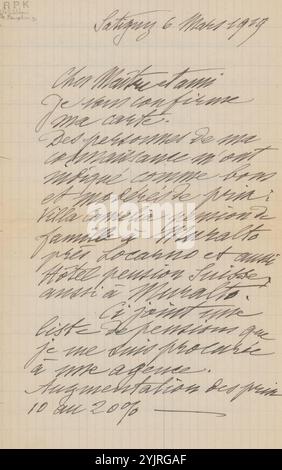 R P K
Satigny 6 Mars 1919
Cher Maître et ami
Je vous confirme
ma carte.
Des personnes de ma
connaissance m'ont
indiqué comme bons
et modérés de prix :
Villa pension de
famille à Muralto
près Locarno et aussi
Hôtel pension Suisse
aussi à Muralto.
Ci joint une
liste de pensions que
je me suis procurée
à une agence.
Augmentation des prix
10 au 20%
alamy
Image ID: 2YJRGAF
www.alamy.com